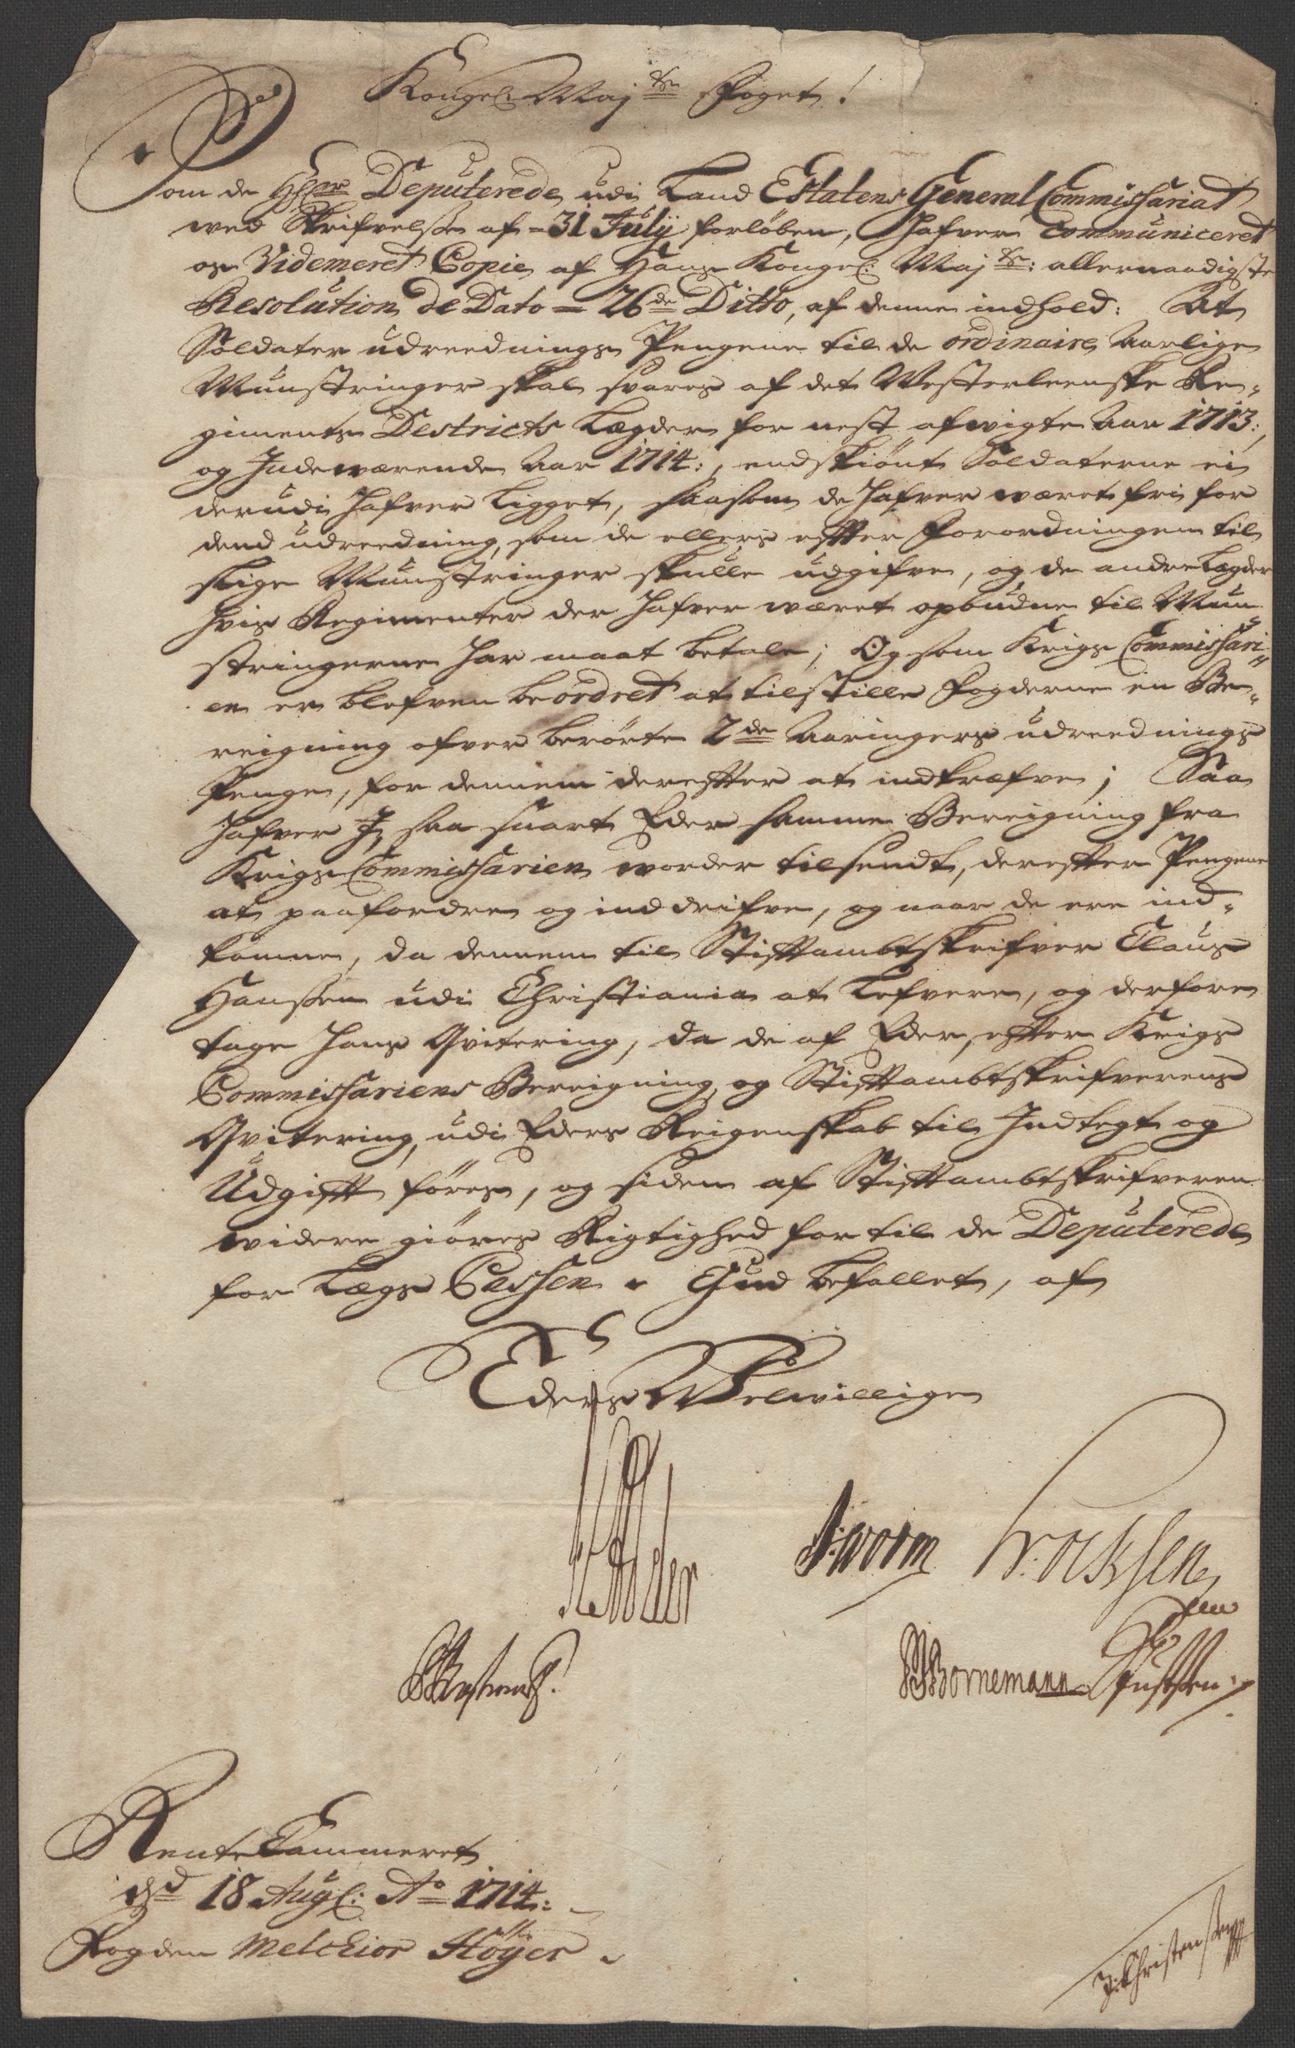 Kongel: Maj:ts Foget!
Som de Hrer Deputerede udi Land Estatens General Commissariat
wed Skrifvelse af 31 Julij forløben, Hafver communiceret
os Videmeret Copie af Hans Kongel: Maj:ts: allernaadigste
Resolution de Dato 26de Ditto, af denne indhold: At
Soldater udreednings Pengene til de ordinaire Aarlige
Munstringer skal svares af det Westerleenske Re-
giments Destricts Lægder for nest afwigte Aar 1713:,
og Indeværende Aar 1714:, endskiønt Soldaterne ei
derudi Hafver Ligget, saasom de Hafver wæret fri for
dend udreedning, som de ellers efter Forordningen til
slige Munstringer skulle udgifve, og de andre Lægder
Hvis Regimenter der Hafver wæret opbudne til Mun
stringerne Har maat betale; Og som Krigs Commissari-
en er blefven beordret at tilstille Fogderne en Be-
reigning ofver berørte 2de Aaringers udreednings
Penge, for dennem derefter at indkræfve; Saa
Hafver I, saa snart Eder samme Bereigning fra
Krigs Commissarien worder tilsendt, derefter Pengene
at paafordre og inddrifve, og naar de ere ind-
komne, da dennem til Stiftambtskrifver Claus
Hanssen udi Christiania at Lefvere, og derfore
tage Hans Qvitering, da de af Eder, efter Krigs
Commissariens Bereigning, og Stiftambtskrifverens
Qvitering, udi Eders Reigenskab til Indtegt og
Udgift føres, og siden af Stiftambtskrifveren
widere giøres Rigtighed for til de Deputerede
for Lægs Cassen. Gud befallet, af
Eders Welwillige
Adler
Worm
Bornemann
RenteCammeret
d 18 Aug: Ao 1714:
Fogden Melchior Höyer
Christensen